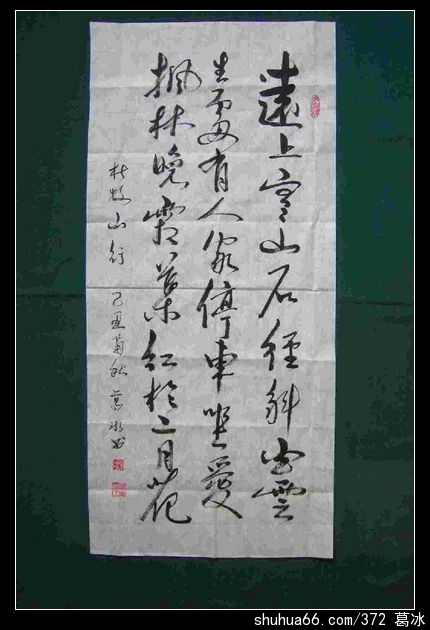 遠上寒山石徑斜白雲
生處有人家停車坐愛
楓林晚霜葉紅於二月花
杜牧山行 己丑菊秋 葛冰书
shuhua66.com/372 葛冰